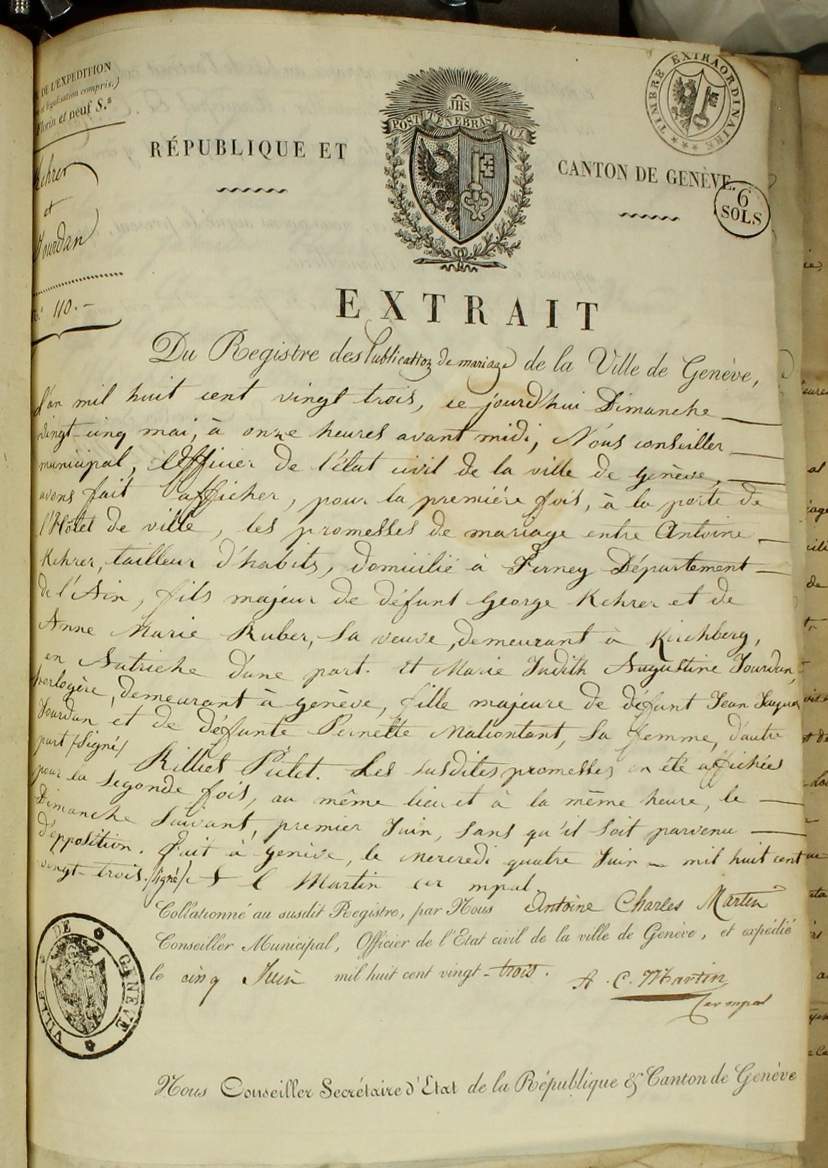 DE L'EXPEDITION
légalisation comprise.)
florin et neuf S.s
Kehrer
et
Jourdan
110.-
JHS
POST TENEBRAS LUX
RÉPUBLIQUE ET
CANTON DE GENÈVE.
TIMBRE EXTRAORDINAIRE
6
SOLS
EXTRAIT
Du Registre des Publication de mariage de la Ville de Genève,
L'an mil huit cent vingt trois, ce jourd'hui Dimanche
vingt-cinq mai, à onze heures avant midi, Nous conseiller
municipal, Officier de l'état civil de la ville de Genève,
avons fait afficher, pour la première fois, à la porte de
l'Hôtel de ville, les promesses de mariage entre Antoine
Kehrer, tailleur d'habits, domicilié à Ferney Département
de l'Ain, fils majeur de défunt George Kehrer et de
Anne Marie Ruber, sa veuve, demeurant à Kirchberg,
en Autriche d'une part. et Marie Judith Augustine Jourdan,
horlogère, demeurant à genève, fille majeure de défunt Jean Jaques
Jourdan et de défunte Pernette Maliontant, sa femme, d'autre
part /Signé/ Rilliet Pictet. Les susdites promesses on été affichées
pour la segonde fois, au même lieu et à la même heure, le
Dimanche suivant, premier Juin, sans qu'il soit parvenu
d'opposition. fait à genève, le mercredi quatre Juin mil huit cent
vingt trois. /signé/ Martin cer mpal
Collationné au susdit Registre, par Nous Antoine Charles Martin
Conseiller Municipal, Officier de l'Etat civil de la ville de Genève, et expédié
le cinq Juin mil huit cent vingt-trois. A. C. Martin
cer mpal
VILLE DE GENEVE
Nous Conseiller Secrétaire d'Etat de la République & Canton de Genève